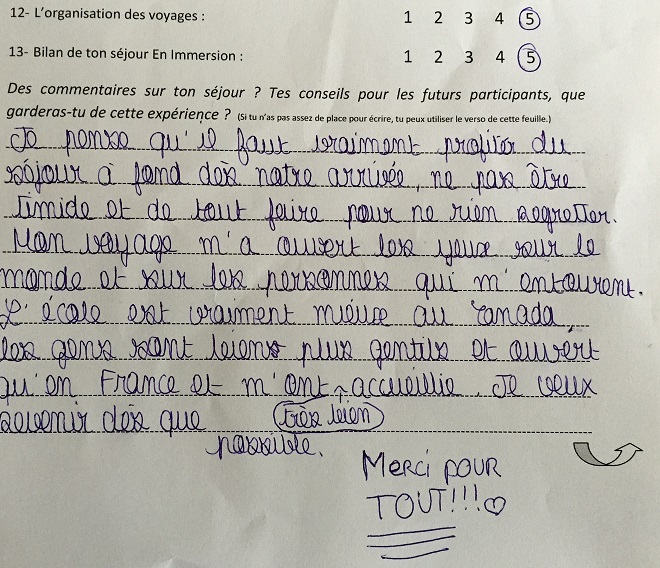 12- L'organisation des voyages : 1 2 3 4 5
13- Bilan de ton séjour En Immersion : 1 2 3 4 5
Des commentaires sur ton séjour ? Tes conseils pour les futurs participants, que
garderas-tu de cette expérience ? (Si tu n'as pas assez de place pour écrire, tu peux utiliser le verso de cette feuille.)
Je pense qu'il faut vraiment profiter du
séjour à fond dès notre arrivée, ne pas être
timide et de tout faire pour ne rien regretter.
Mon voyage m'a ouvert les yeux sur le
monde et sur les personnes qui m'entourent.
L'école est vraiment mieux au Canada,
les gens sont biens plus gentils et ouvert
qu'en France et m'ont accueillie. Je veux
revenir dès que (très bien)
possible.
Merci pour
TOUT!!! ♡